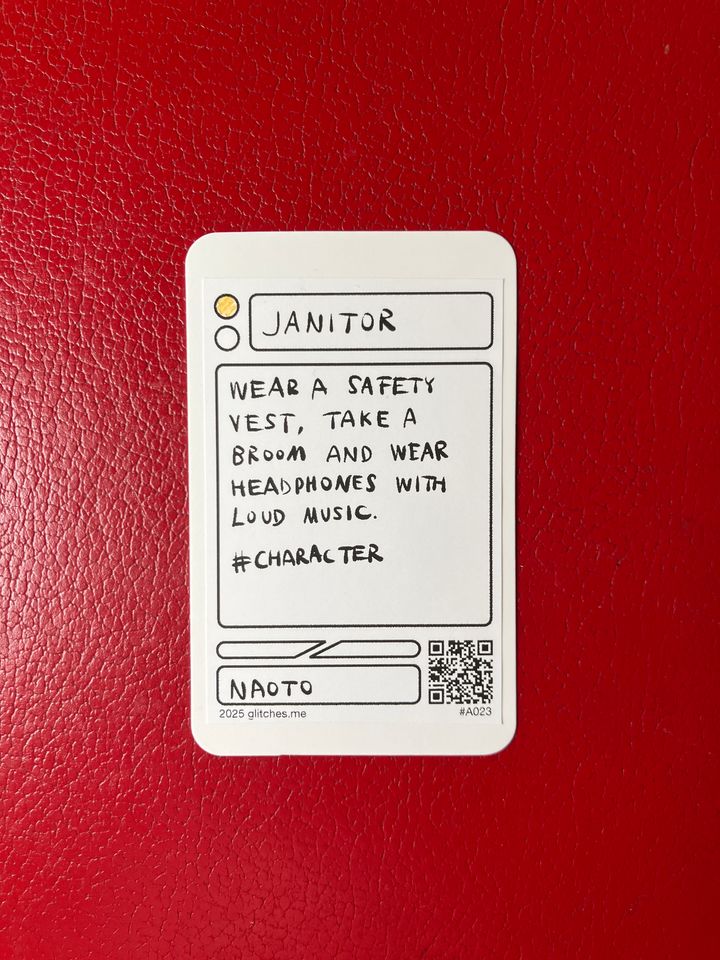 JANITOR
WEAR A SAFETY
VEST, TAKE A
BROOM AND WEAR
HEADPHONES WITH
LOUD MUSIC.
#CHARACTER
NAOTO
2025 glitches.me
#A023